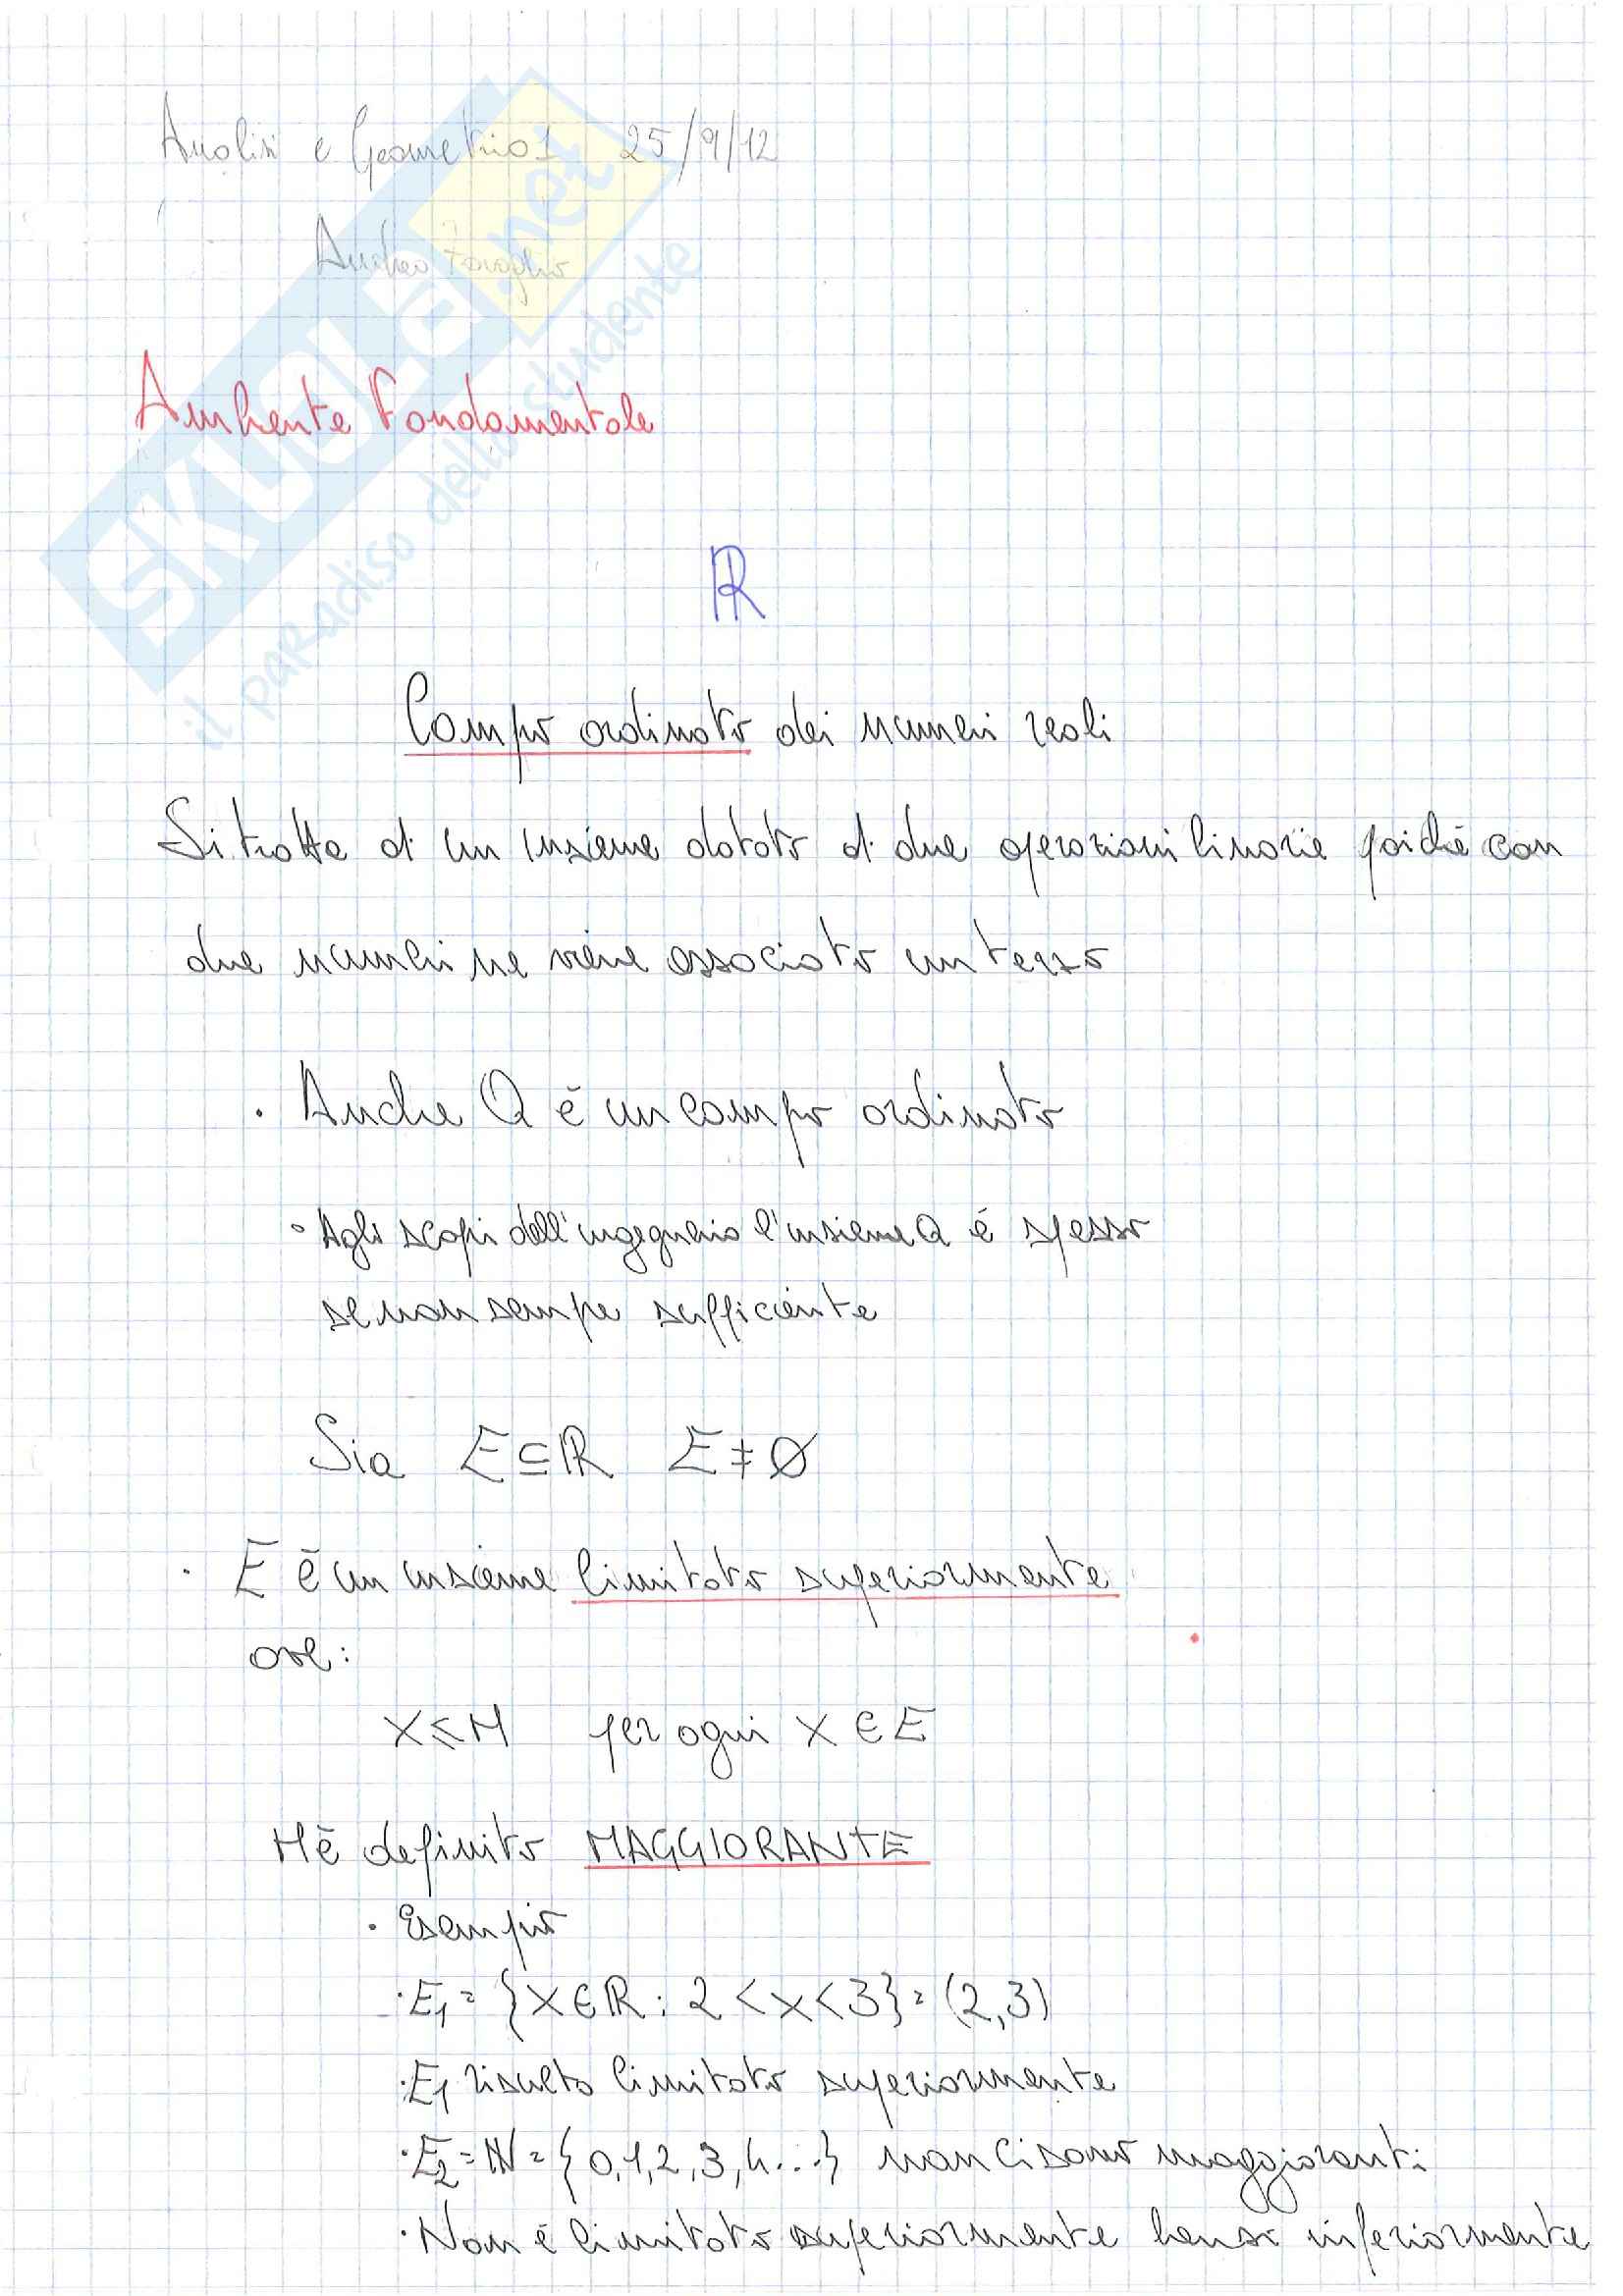 Analisi e Geometria 1 25/9/12
Andrea
SKUOLA.net
il paradiso dello studente
Ambiente Fondamentale
ℝ
Campo ordinato dei numeri reali
Si tratta di un insieme dotato di due operazioni binarie poiché con
due numeri ne viene associato un terzo
· Anche Q è un campo ordinato
° Agli scopi dell'ingegneria l'insieme Q è spesso
se non sempre sufficiente
Sia E ⊆ ℝ E ≠ ∅
· E è un insieme limitato superiormente
ove:
x ⩽ M per ogni x ∈ E
M è definito MAGGIORANTE
· Esempio
· E₁ = {x ∈ ℝ : 2 < x < 3} = (2,3)
· E₁ risulta limitato superiormente
· E₂ = ℕ = {0,1,2,3,4...} non ci sono maggioranti
· Non è limitato superiormente bensì inferiormente